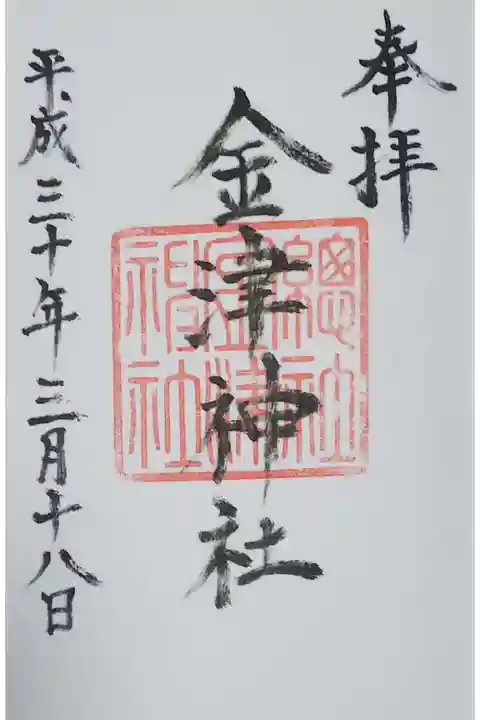 奉拝
金津神社
總社金津神社
平成三十年三月十八日